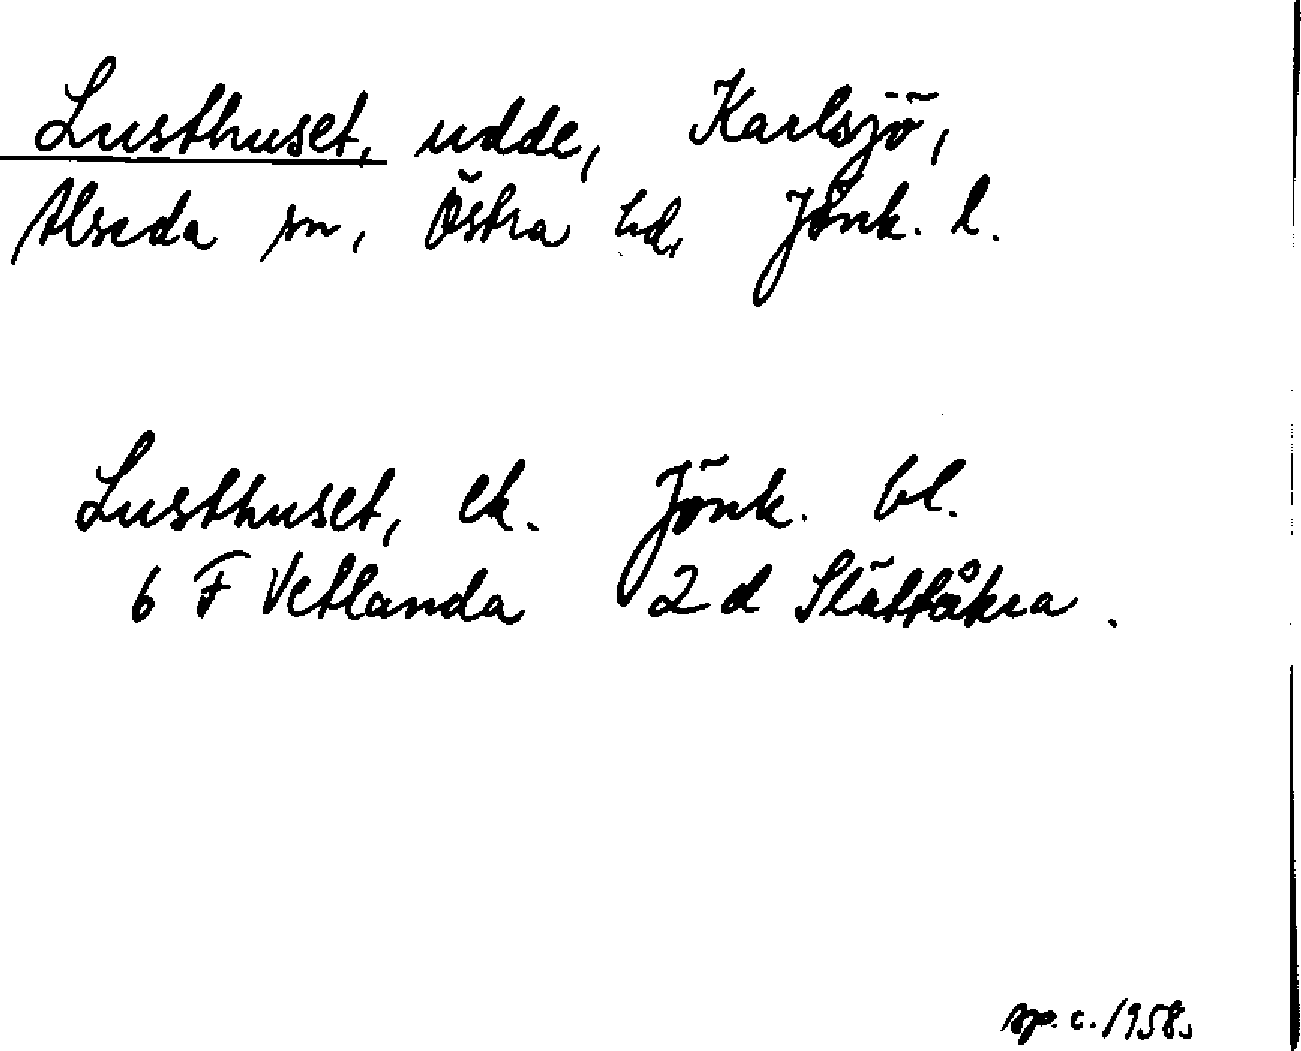 Lusthuset, udde, Karlsjö,
Alseda sn, Östra hd, Jönk. l.
Lusthuset, ek. Jönk. bl.
6 F Vetlanda 2 d Slättåkra.
c. 1958.